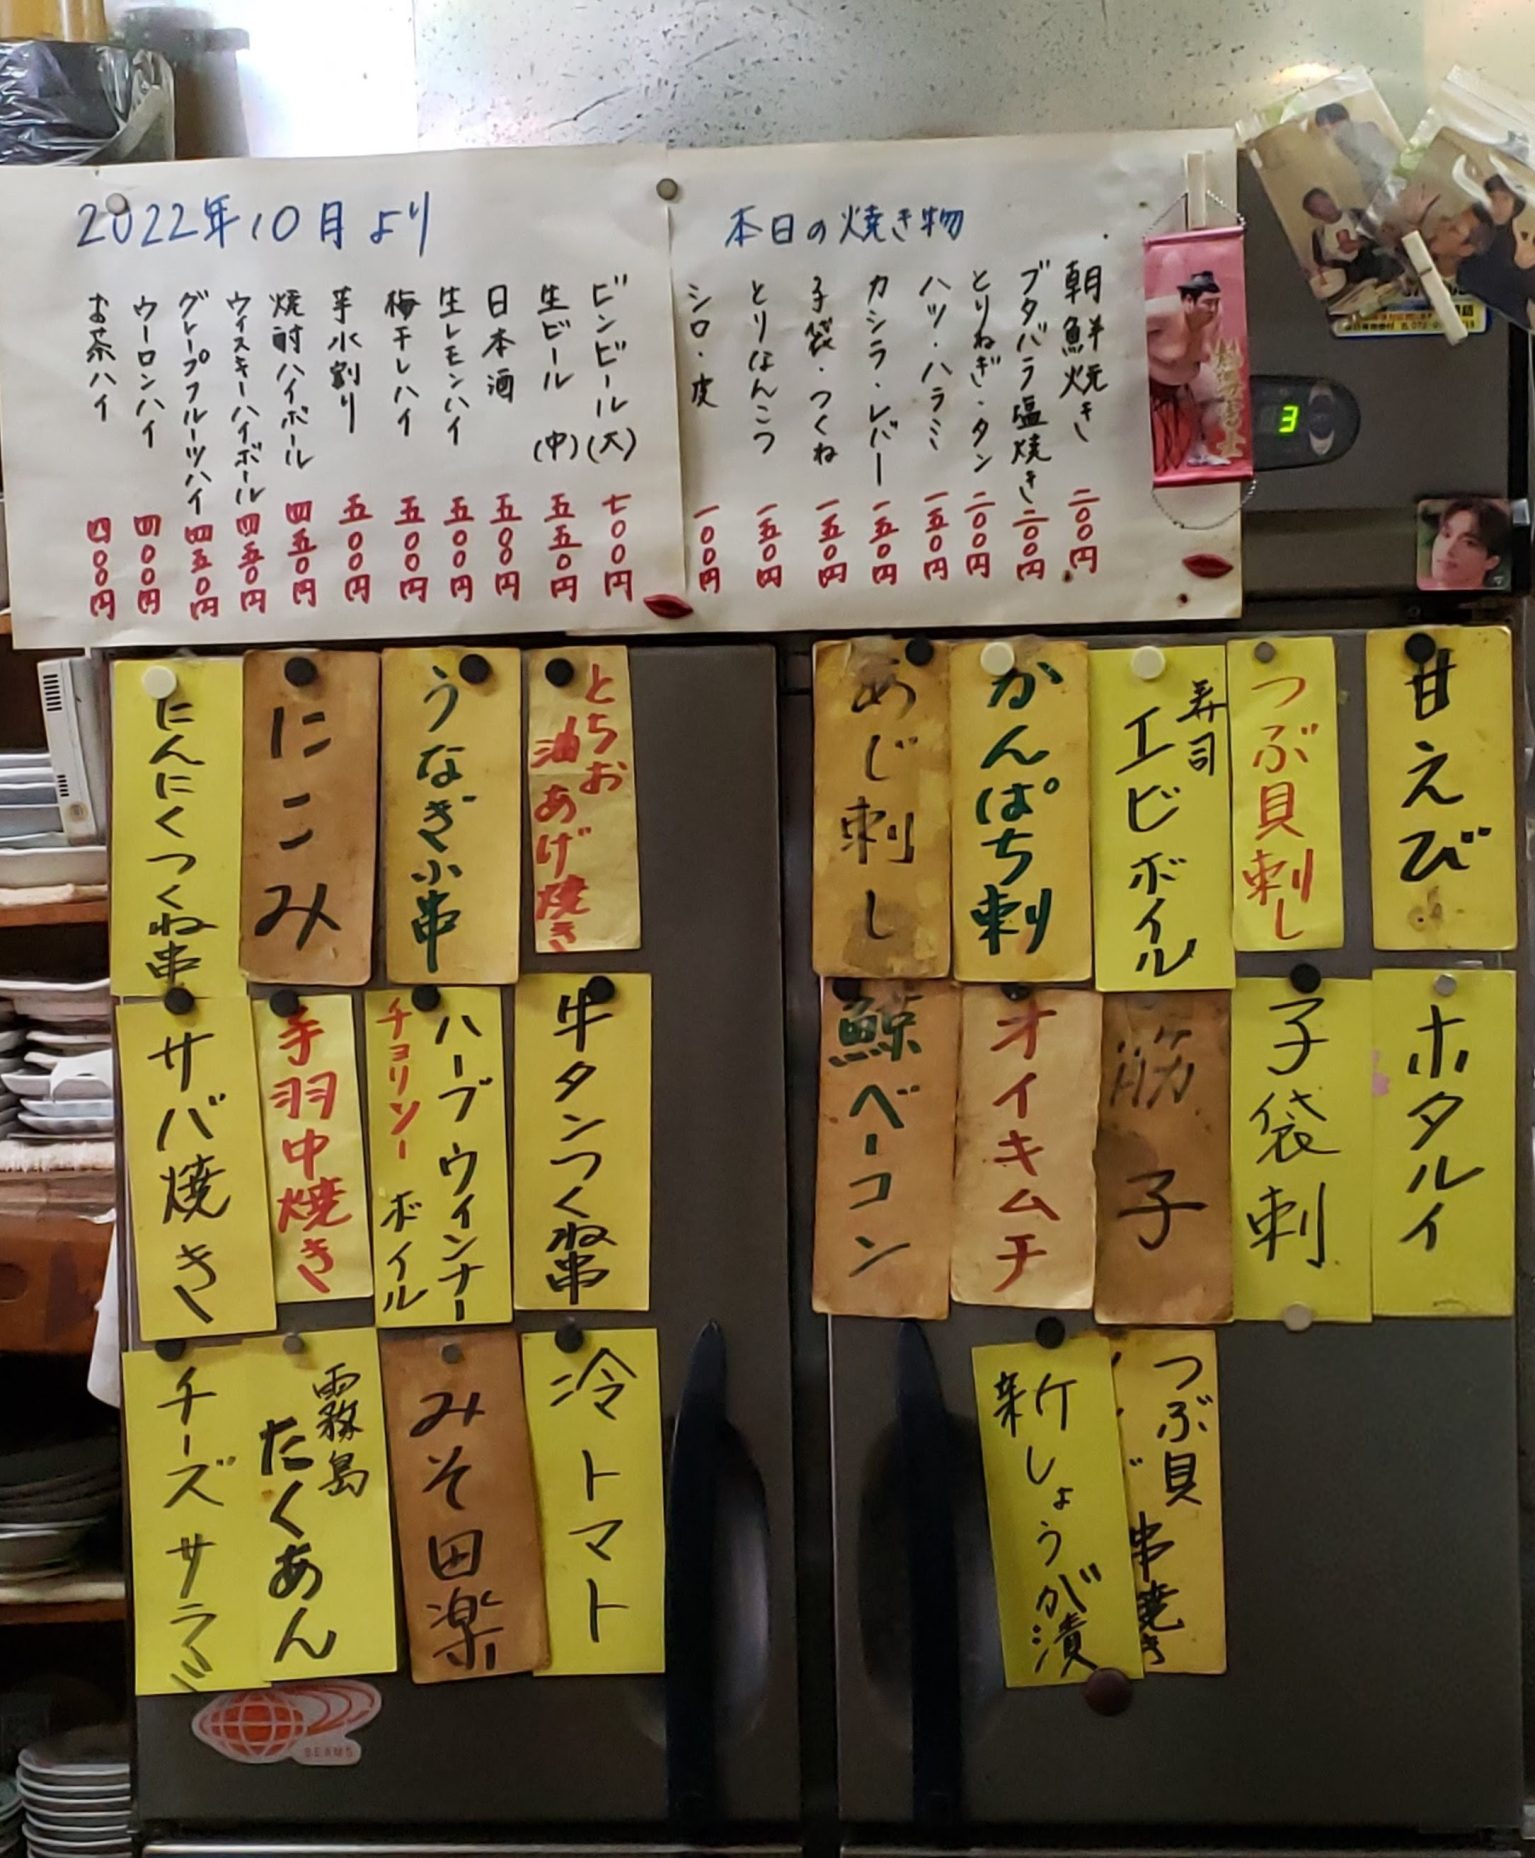 2022年10月より
本日の焼き物
朝鮮焼き 二〇〇円
ブタバラ塩焼き 二〇〇円
とりねぎ・タン 二〇〇円
ハツ・ハラミ 一五〇円
カシラ・レバー 一五〇円
子袋・つくね 一五〇円
とりなんこつ 一五〇円
シロ・皮 一〇〇円
ビンビール(大) 七〇〇円
生ビール(中) 五五〇円
日本酒 五〇〇円
生レモンハイ 五〇〇円
梅干しハイ 五〇〇円
芋水割り 五〇〇円
焼酎ハイボール 四五〇円
ウィスキーハイボール 四五〇円
グレープフルーツハイ 四五〇円
ウーロンハイ 四〇〇円
お茶ハイ 四〇〇円
3
甘えび
つぶ貝刺し
寿司
エビボイル
かんぱち刺
あじ刺し
とちお
油あげ焼き
うなぎ小串
にこみ
にんにくつくね串
ホタルイ
子袋刺
筋子
オイキムチ
鯨ベーコン
牛タンつくね串
ハーブウィンナー
チョリソー ボイル
手羽中焼き
サバ焼き
つぶ貝
串焼き
新しょうが漬
冷トマト
みそ田楽
霧島
たくあん
チーズサラミ
BEAMS